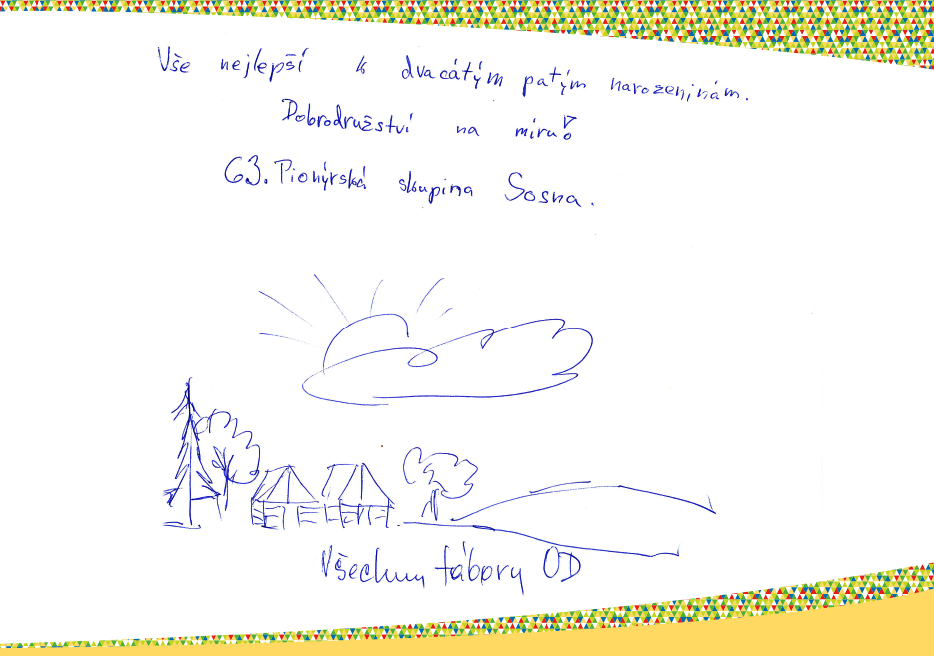 Vše nejlepší k dvacátým patým narozeninám.
Dobrodružství na míru!
63. Pionýrská skupina Sosna.
Všechny tábory OD